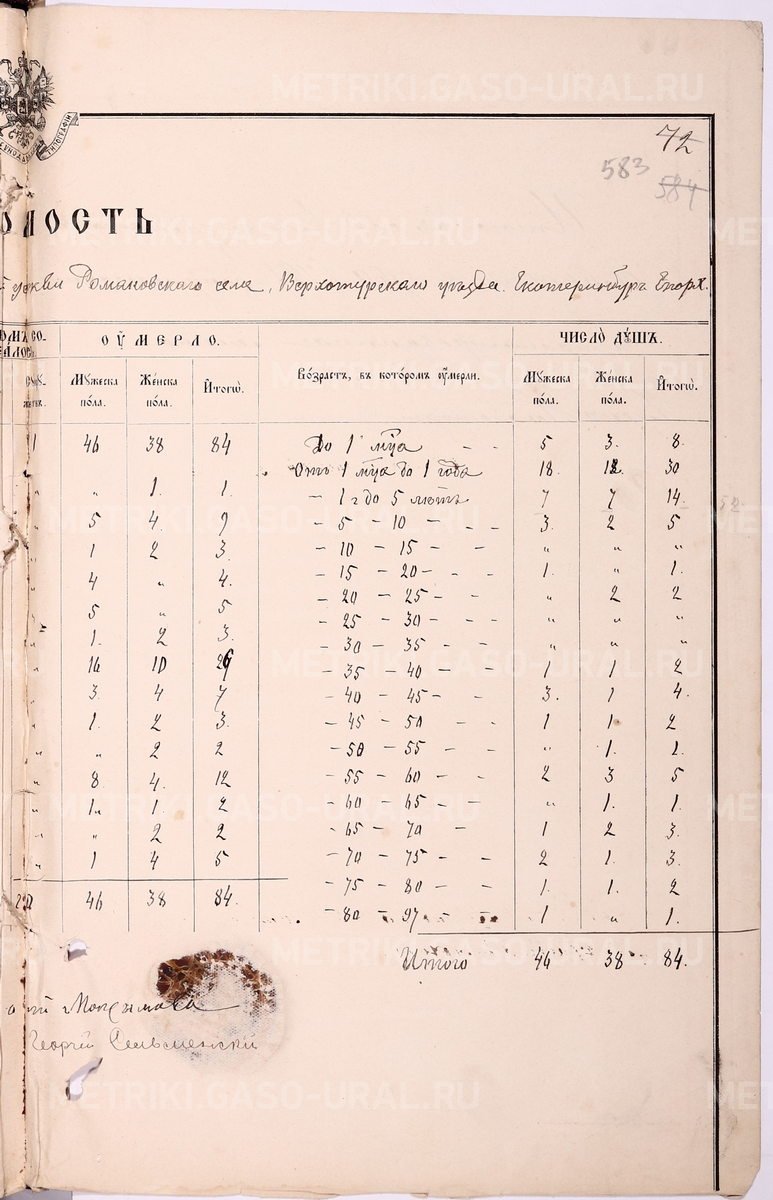 METRIKI.GASO-URAL.RU
72
583
584
ОМОСТЬ
церкви Романовскаго села, Верхотурскаго уѣзда. Екатеринбур. Епарх.
ОУМЕРЛО.
ЧИСЛО ДУШЪ.
Мужеска пола. Женска пола. Итого. Возрастъ, въ которомъ оумерли. Мужеска пола. Женска пола. Итого.
46 38 84 До 1 мца - - 5 3. 8.
Отъ 1 мца до 1 года 18. 12. 30
" 1. 1. - 1 г до 5 лѣтъ 7 7 14.
5 4. 9 - 5 - 10 - - - 3. 2 5
1 2 3. - 10 - 15 - - " " "
4 " 4. - 15 - 20 - - - 1. " 1.
5 " 5 - 20 - 25 - - " 2 2
- 25 - 30 - - " " "
1. 2 3. - 30 - 35 - - " " "
16 10 26 - 35 - 40 - - 1 1 2
3. 4 7 - 40 - 45 - - 3. 1 4.
1. 2 3. - 45 - 50 - - 1 1. 2
" 2 2 - 50 - 55 - - " 1. 1.
8. 4. 12 - 55 - 60 - - 2 3 5
1. 1. 2 - 60 - 65 - - " 1. 1.
" 2 2 - 65 - 70 - 1 2 3.
1 4 5 - 70 - 75 - - 2 1. 3.
- 75 - 80 - - 1. 1. 2
46 38 84. - 80 - 97 - - 1 " 1.
Итого 46 38 84.
Георгій